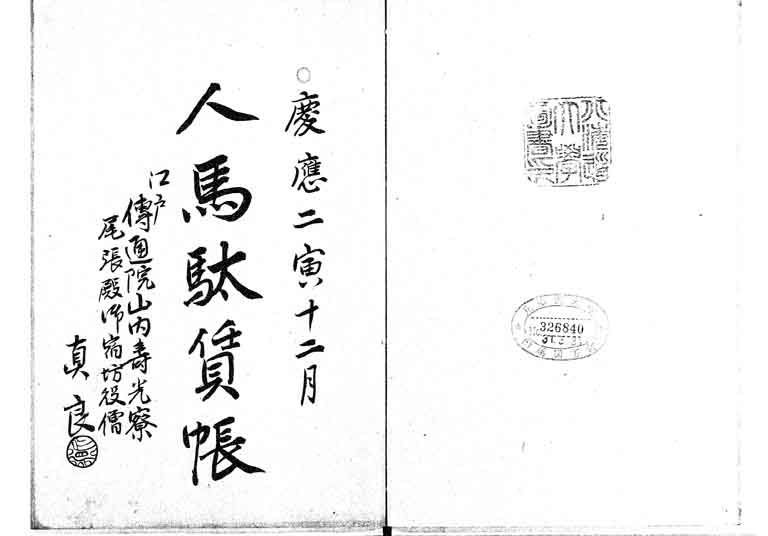 慶應二寅十二月
人馬駄賃帳
江戸
傳通院山内壽光寮
尾張殿御宿坊役僧
真良
326840